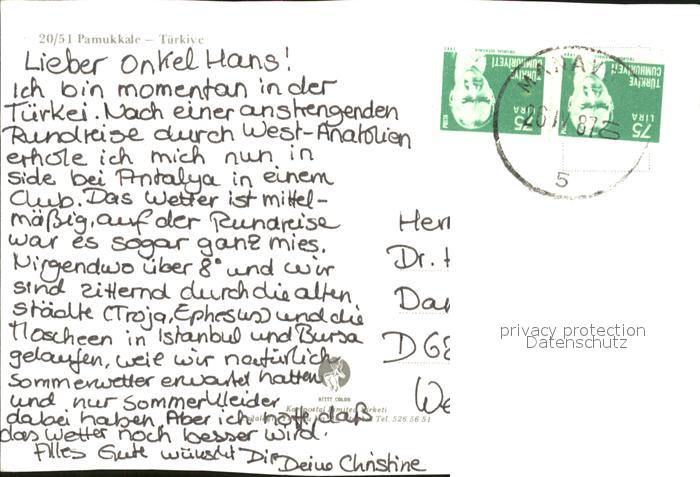 20/51 Pamukkale – Türkiye
Lieber Onkel Hans!
Ich bin momentan in der
Türkei. Nach einer anstrengenden
Rundreise durch West-Anatolien
erhole ich mich nun in
Side bei Antalya in einem
Club. Das Wetter ist mittel-
mäßig, auf der Rundreise
war es sogar ganz mies.
Nirgendwo über 8° und wir
sind zitternd durch die alten
Städte (Troja, Ephesus) und die
Moscheen in Istanbul und Bursa
gelaufen, weil wir natürlich
Sommerwetter erwartet hatten
und nur Sommerkleider
dabei haben. Aber ich hoffe, daß
das Wetter noch besser wird.
Alles Gute wünscht Dir
Deine Christine
KITTY COLOR
Kartpostal Limited Şirketi
Tel. 526 56 51
TÜRKİYE
CUMHURİYETİ
75
LİRA
POSTA
TÜRKİYE
CUMHURİYETİ
75
LİRA
MANAV
20 IV 87
5
Herr
Dr. H
Dar
D 68
We
privacy protection
Datenschutz